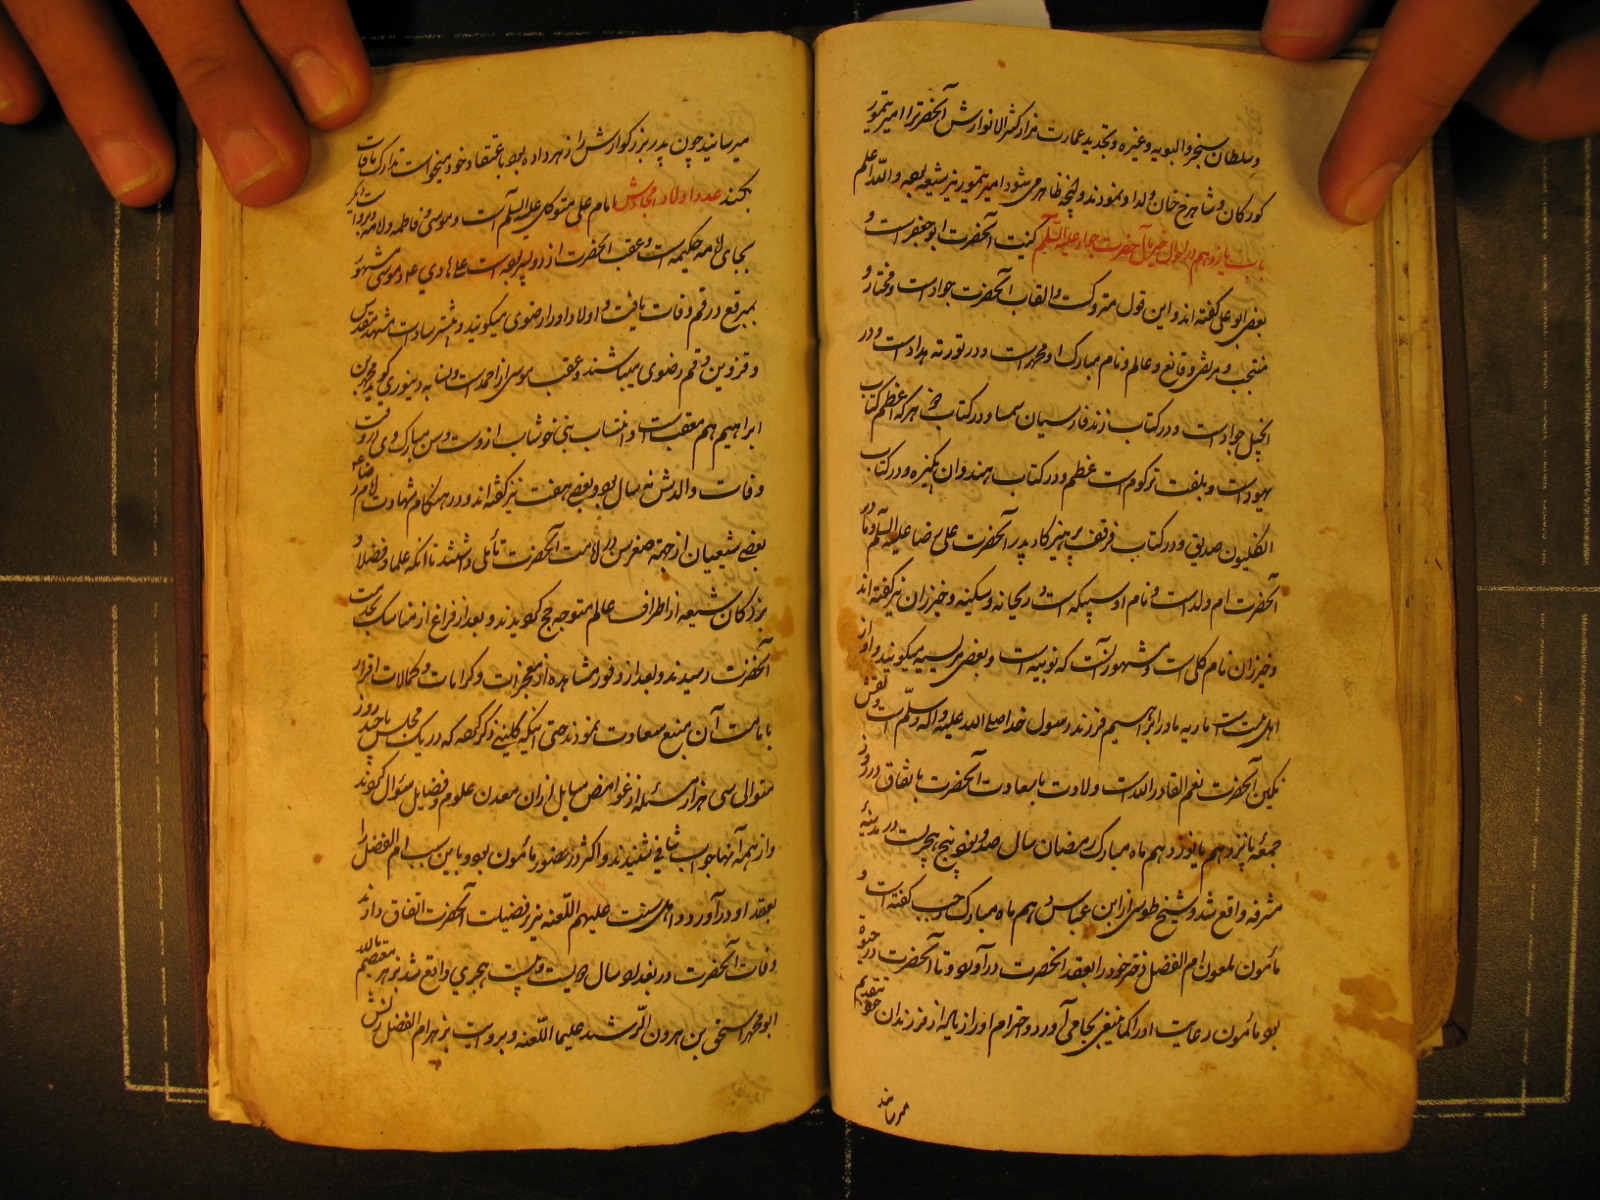 و سلطان سنجر و البویه و غیره و تجدید عمارت مزار کثیر الانوارش آنحضرترا امیر تیمور
کورکان و شاهرخ خان ولد او نمودند و آنچه ظاهر می شود امیر تیمور نیز شیعه بوده والله اعلم
باب یازدهم در احوال خیر مآل حضرت جواد علیه السلام کنیت آنحضرت ابو جعفر است و
بعضی ابو علی گفته اند و این قول متروکست و القاب آنحضرت جواد است و مختار و
منتجب و مرتضی و قانع و عالم و نام مبارک او محمد است و در توریة هداد است و در
انجیل جواد است و در کتاب زند فارسیان سمسا و در کتاب هرکه اعظم کتاب
یهود است و بلغت ترکوم است عظم و در کتاب هندوان پاکیزه و در کتاب
انکلیون صدیق و در کتاب فرقف پرهیزکار پدر آنحضرت علی رضا علیه السلام و مادر
آنحضرت ام ولد است و نام او سبیکه است و ریحانه و سکینه و خیزران نیز گفته اند
و خیزران نام کلی است و مشهور آنست که نوبیه است و بعضی مریسیه میگویند و او از
اهل بیت ماریه مادر ابراهیم فرزند رسول خدا صلی الله علیه و آله و سلم است و نقش
نگین آنحضرت نعم القادر الله است ولادت با سعادت آنحضرت باتفاق در روز
جمعه پانزدهم یا نوزدهم ماه مبارک رمضان سال صد و نود و پنج هجریست در مدینه
مشرفه واقع شد و شیخ طوسی از ابن عیاس دهم ماه مبارک رجب گفته است و
مأمون ملعون ام الفضل دختر خود را بعقد آنحضرت در آورد و تا آنحضرت در حیوة
بود مأمون رعایت او را کما ینبغی بجا می آورد و احترام او را زیاده از فرزندان خود تقدیم
میرسانید
میرسانید چون پدر بزرگوارش را زهر داده بود باعتقاد خود میخواست تدارک مافات
بکند عدد اولاد امجادش امام علی متوکل علیه السلام است و موسی و فاطمه و امامه و بروایت دیگر
بجای امامه حکیمه است و عقب آنحضرت از دو پسر بوده است علی هادی ع و موسی مشهور
بمبرقع در قم وفات یافت و اولاد او را رضوی میگویند و بیشتر سادات مشهد مقدس
و قزوین و قم رضوی میباشند و عقب موسی از احمد است و نسابه دینوری گوید محمد بن
ابراهیم هم معقب است و انتساب بنی خوشاب از وست و سن مبارک وی در وقت
وفات والدش نه سال بود و بعضی هفت نیز گفته اند و در هنکام شهادت امام رضا ع
بعضی شیعیان از جهة صغر سن در امامت آنحضرت تأملی داشتند تا آنکه علما و فضلا و
بزرگان شیعه از اطراف عالم متوجه حج گردیدند و بعد از فراغ از مناسک بخدمت
آنحضرت رسیدند و بعد از وفور مشاهده از معجزات و کرامات و کمالات اقرار
بامامت آن منبع سعادت نمودند حتی اینکه کلینی ذکر کرده که در یک مجلس یا چند روز
متوالی سی هزار مسئله از غوامض مسایل از ان معدن علوم و فضایل سؤال کردند
و از همه آنها جواب شافی شنیدند و اکثر در حضور مأمون بود و باین سبب ام الفضل را
بعقد او در آورد و اهل سنت علیهم اللعنه نیز بر فضیلت آنحضرت اتفاق دارند
وفات آنحضرت در بغداد سال دویست و بیست هجری واقع شد بزهر معتصم بالله
ابو محمد اسحق بن هرون الرشید علیهما اللعنه و بروایت بزهر ام الفضل زنش